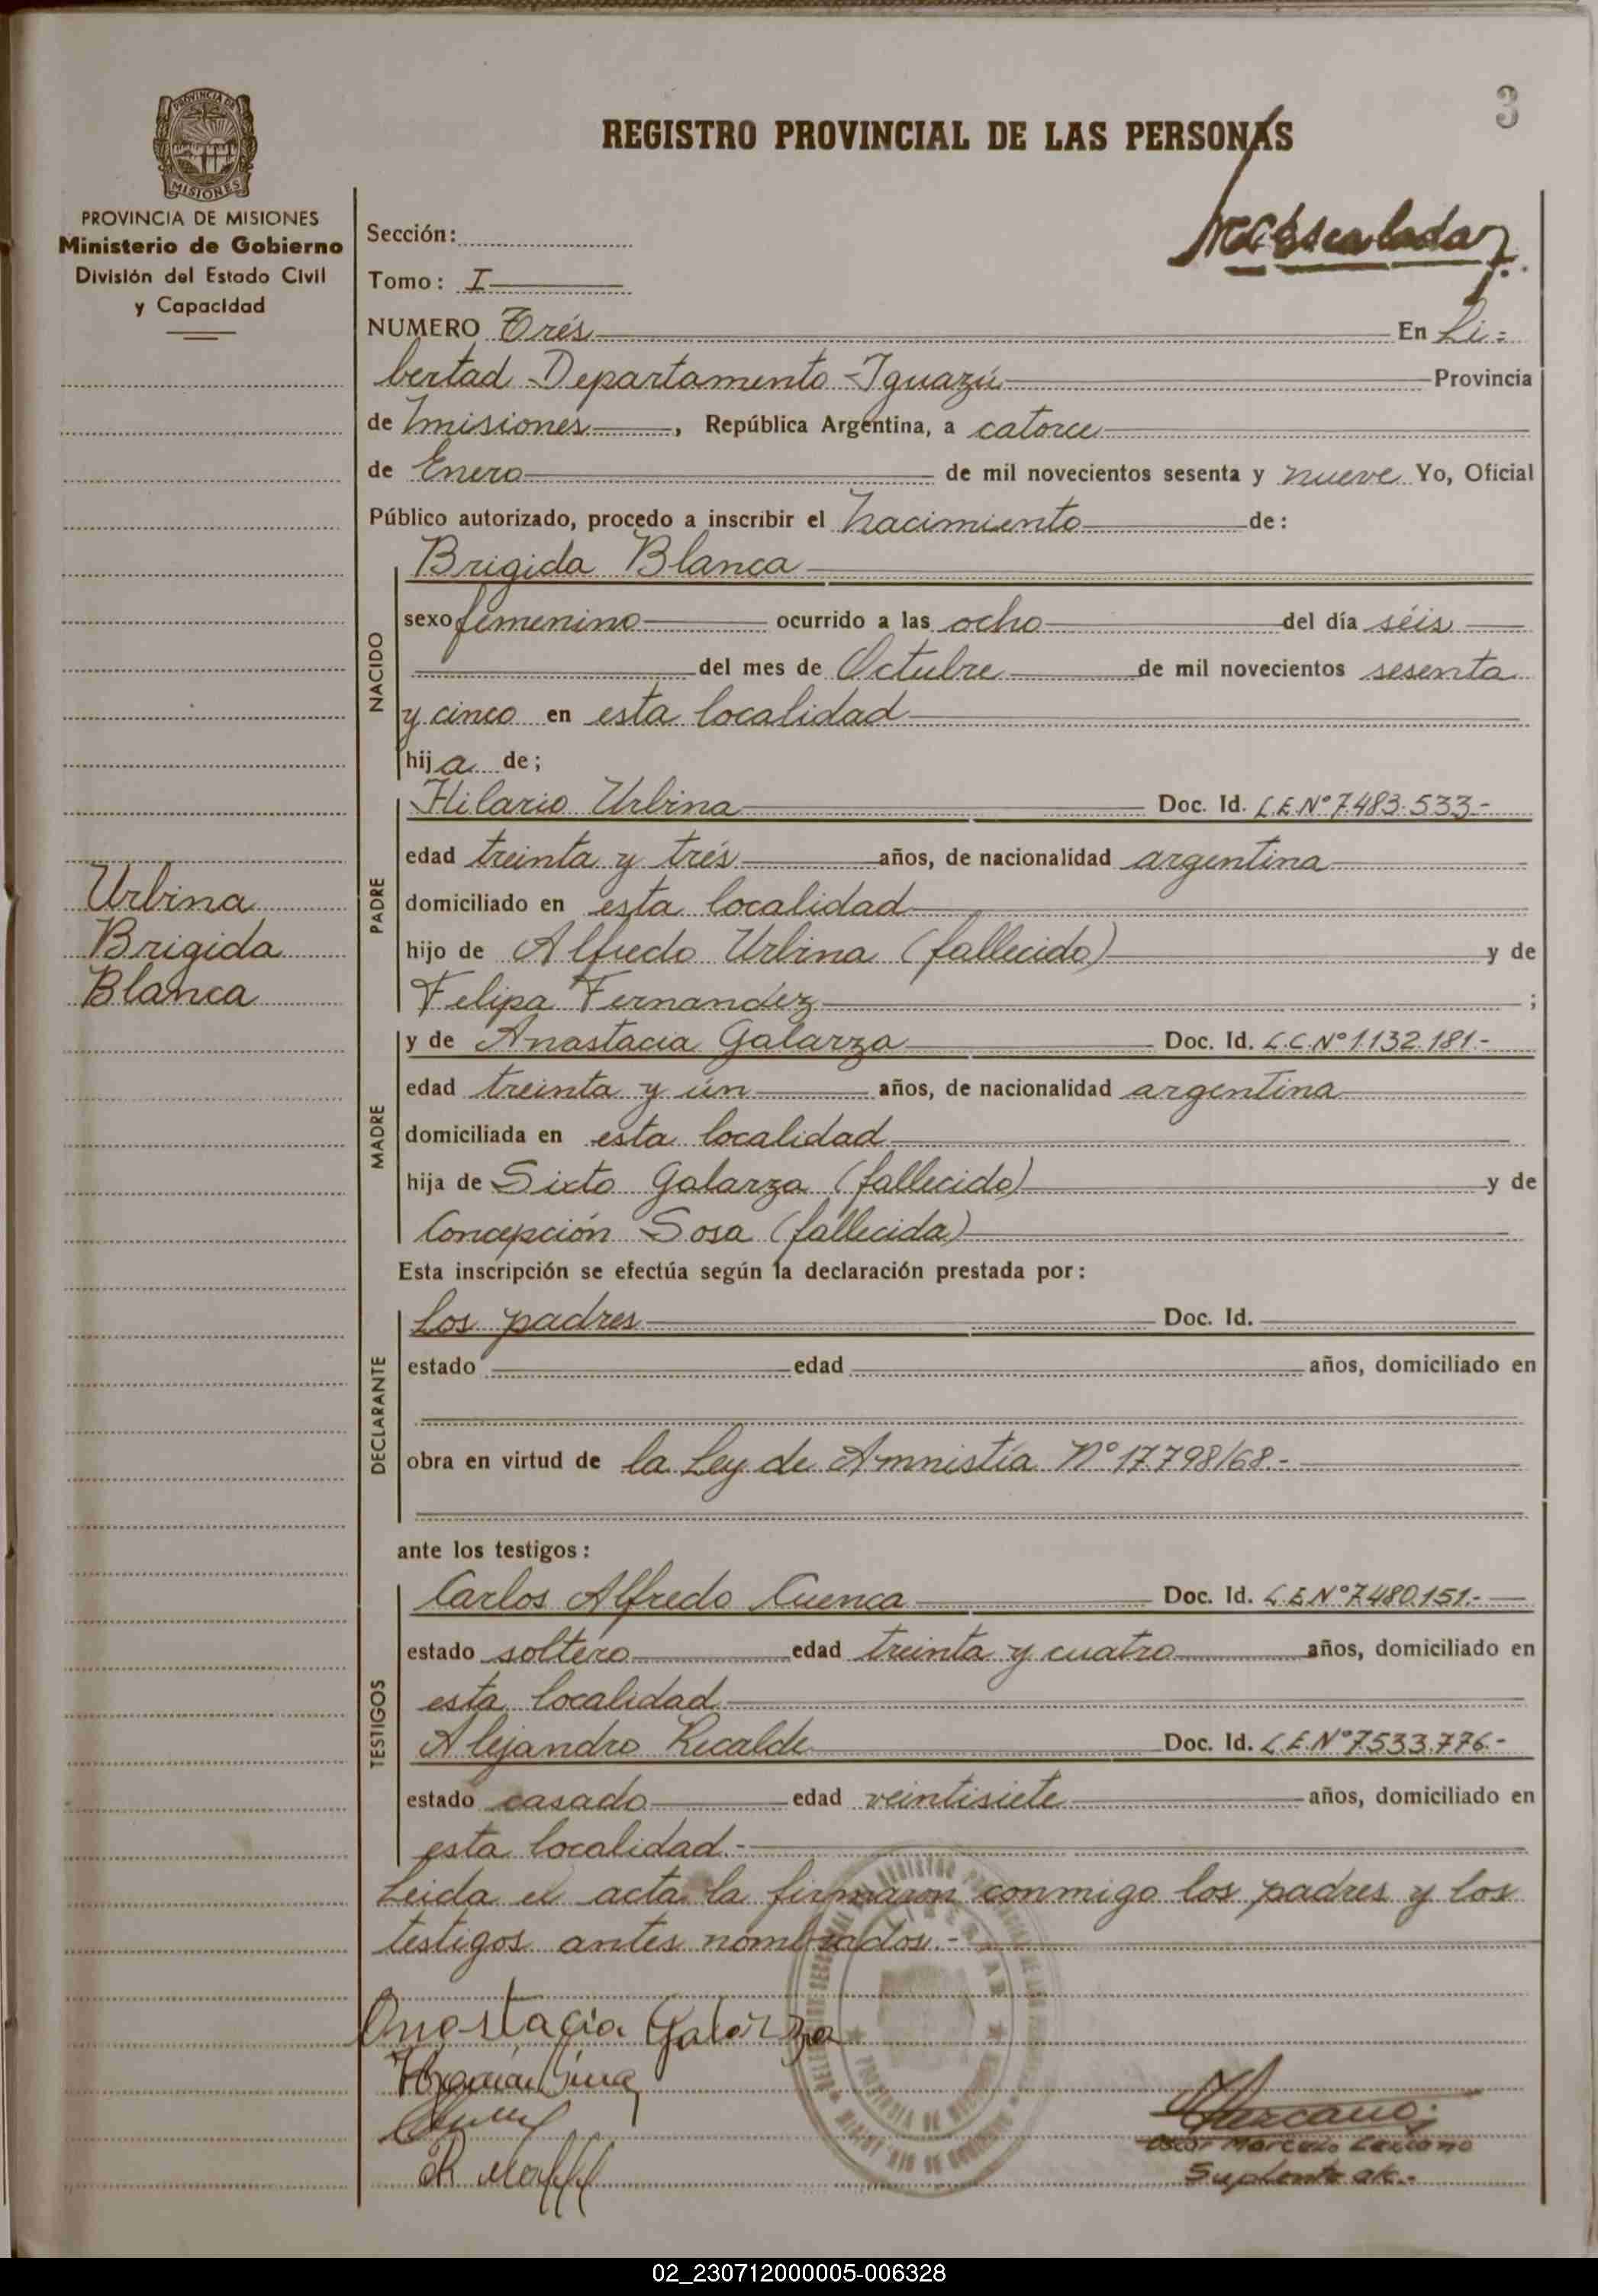 3
REGISTRO PROVINCIAL DE LAS PERSONAS
PROVINCIA DE MISIONES
PROVINCIA DE MISIONES
Ministerio de Gobierno
División del Estado Civil
y Capacidad
Sección:
Tomo: I
NUMERO Trés En Li=
bertad Departamento Iguazú Provincia
de Misiones, República Argentina, a catorce
de Enero de mil novecientos sesenta y nueve Yo, Oficial
Público autorizado, procedo a inscribir el nacimiento de:
Brigida Blanca
NACIDO
sexo femenino ocurrido a las ocho del día séis
del mes de Octubre de mil novecientos sesenta
y cinco en esta localidad
hija de;
Hilario Urbina Doc. Id. L.E.Nº 7.483.533.-
PADRE
edad treinta y trés años, de nacionalidad argentina
domiciliado en esta localidad
hijo de Alfredo Urbina (fallecido) y de
Felipa Fernandez ;
Urbina
Brigida
Blanca
y de Anastacia Galarza Doc. Id. L.C.Nº 1.132.181.-
MADRE
edad treinta y ún años, de nacionalidad argentina
domiciliada en esta localidad
hija de Sixto Galarza (fallecido) y de
Concepción Sosa (fallecida)
Esta inscripción se efectúa según la declaración prestada por:
Los padres Doc. Id.
DECLARANTE
estado edad años, domiciliado en
obra en virtud de la Ley de Amnistía Nº 17798/68.-
ante los testigos:
Carlos Alfredo Cuenca Doc. Id. L.E.Nº 7.480.151.-
TESTIGOS
estado soltero edad treinta y cuatro años, domiciliado en
esta localidad
Alejandro Recalde Doc. Id. L.E.Nº 7.533.776.-
estado casado edad veintisiete años, domiciliado en
esta localidad.-
Leida el acta la firmaron conmigo los padres y los
testigos antes nombrados.-
Anastacia Galarza
Suplente
02_230712000005-006328